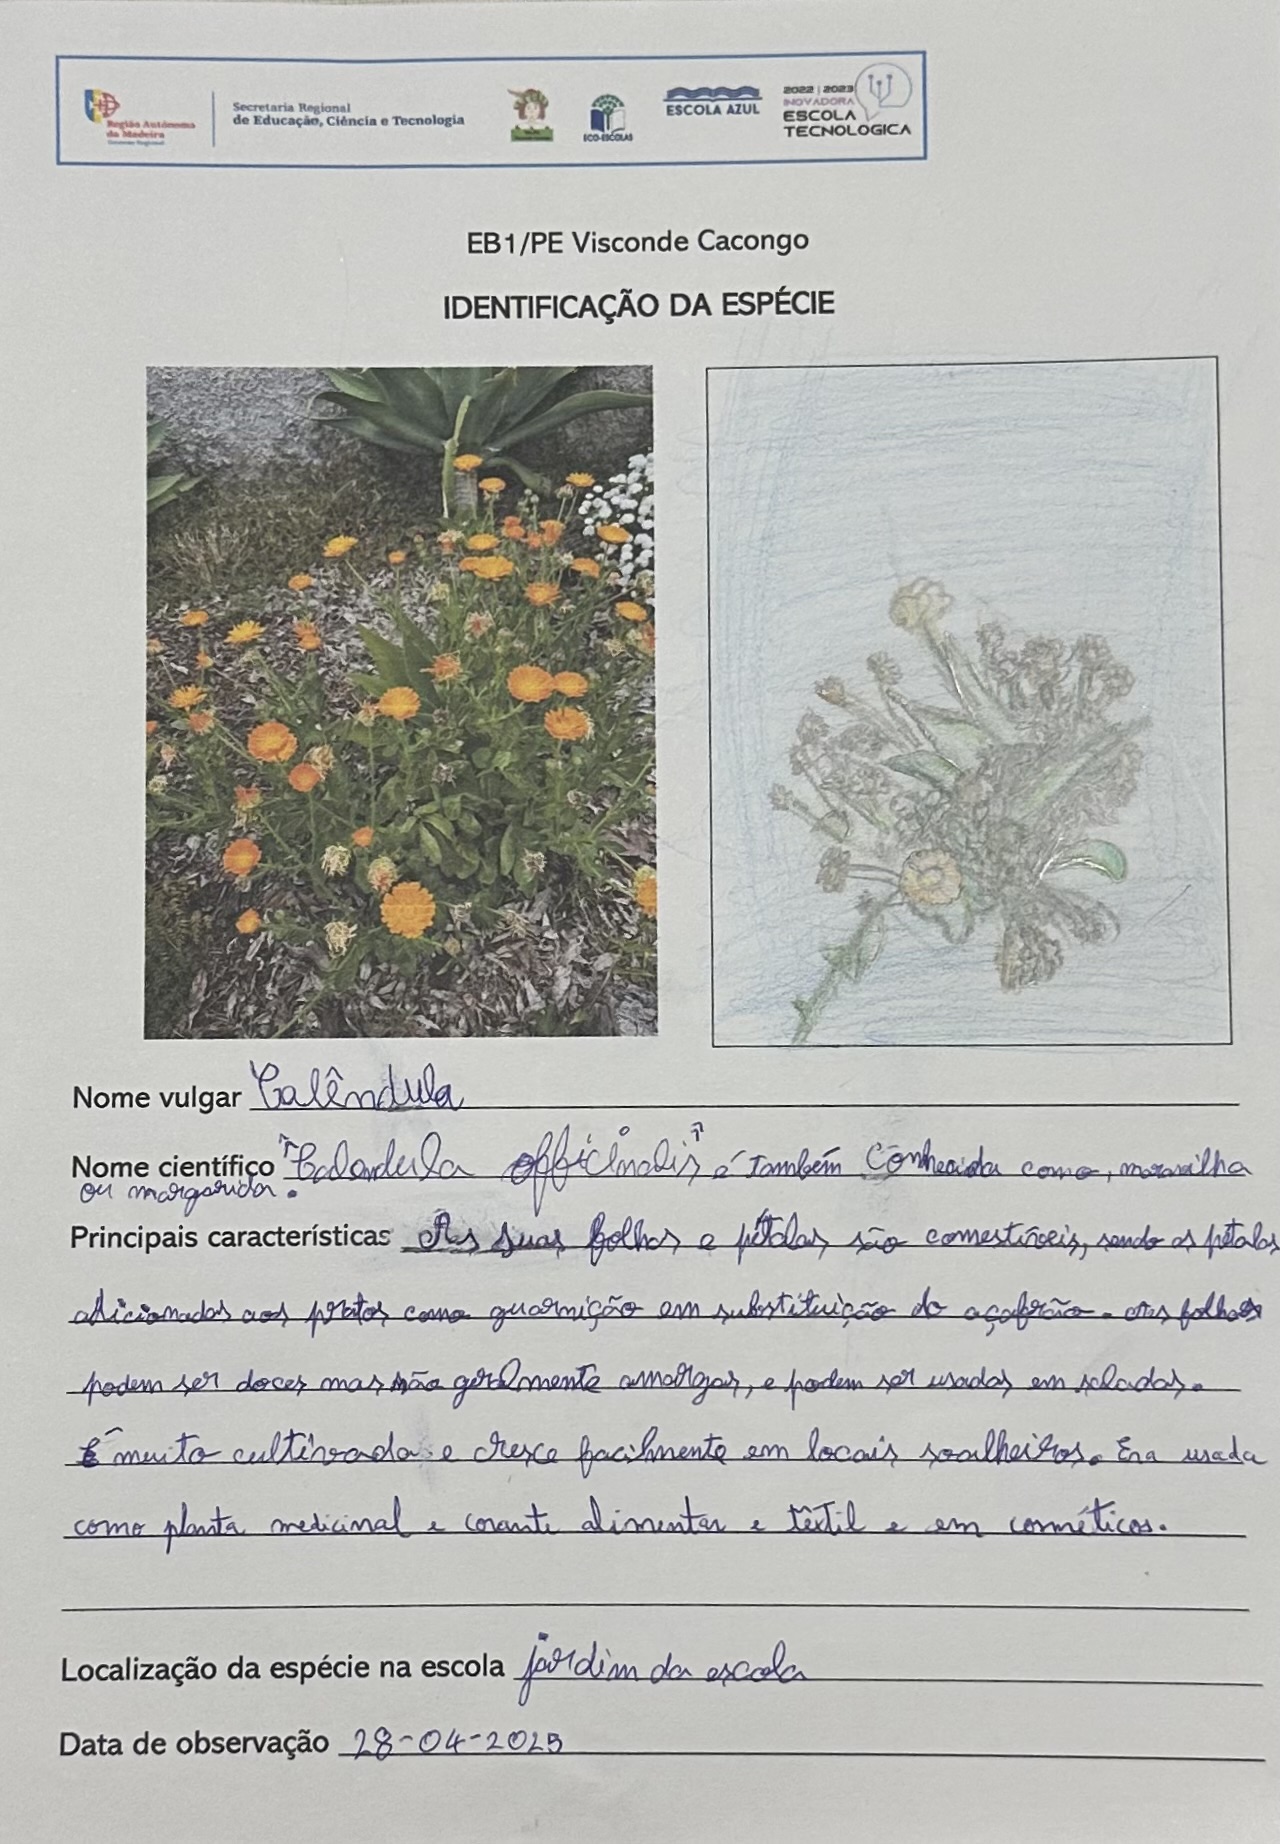 Região Autónoma
da Madeira
Governo Regional
Secretaria Regional
de Educação, Ciência e Tecnologia
ECO-ESCOLAS
ESCOLA AZUL
2022 | 2023
INOVADORA
ESCOLA
TECNOLOGICA
EB1/PE Visconde Cacongo
IDENTIFICAÇÃO DA ESPÉCIE
Nome vulgar Calêndula
Nome científico "Calendula officinalis" é também conhecida como, maravilha
ou margarida.
Principais características As suas folhas e pétalas são comestíveis, sendo as pétalas
adicionadas aos pratos como guarnição em substituição do açafrão. As folhas
podem ser doces mas são geralmente amargas, e podem ser usadas em saladas.
É muito cultivada e cresce facilmente em locais soalheiros. Era usada
como planta medicinal e corante alimentar e têxtil e em cosméticos.
Localização da espécie na escola jardim da escola
Data de observação 28-04-2025